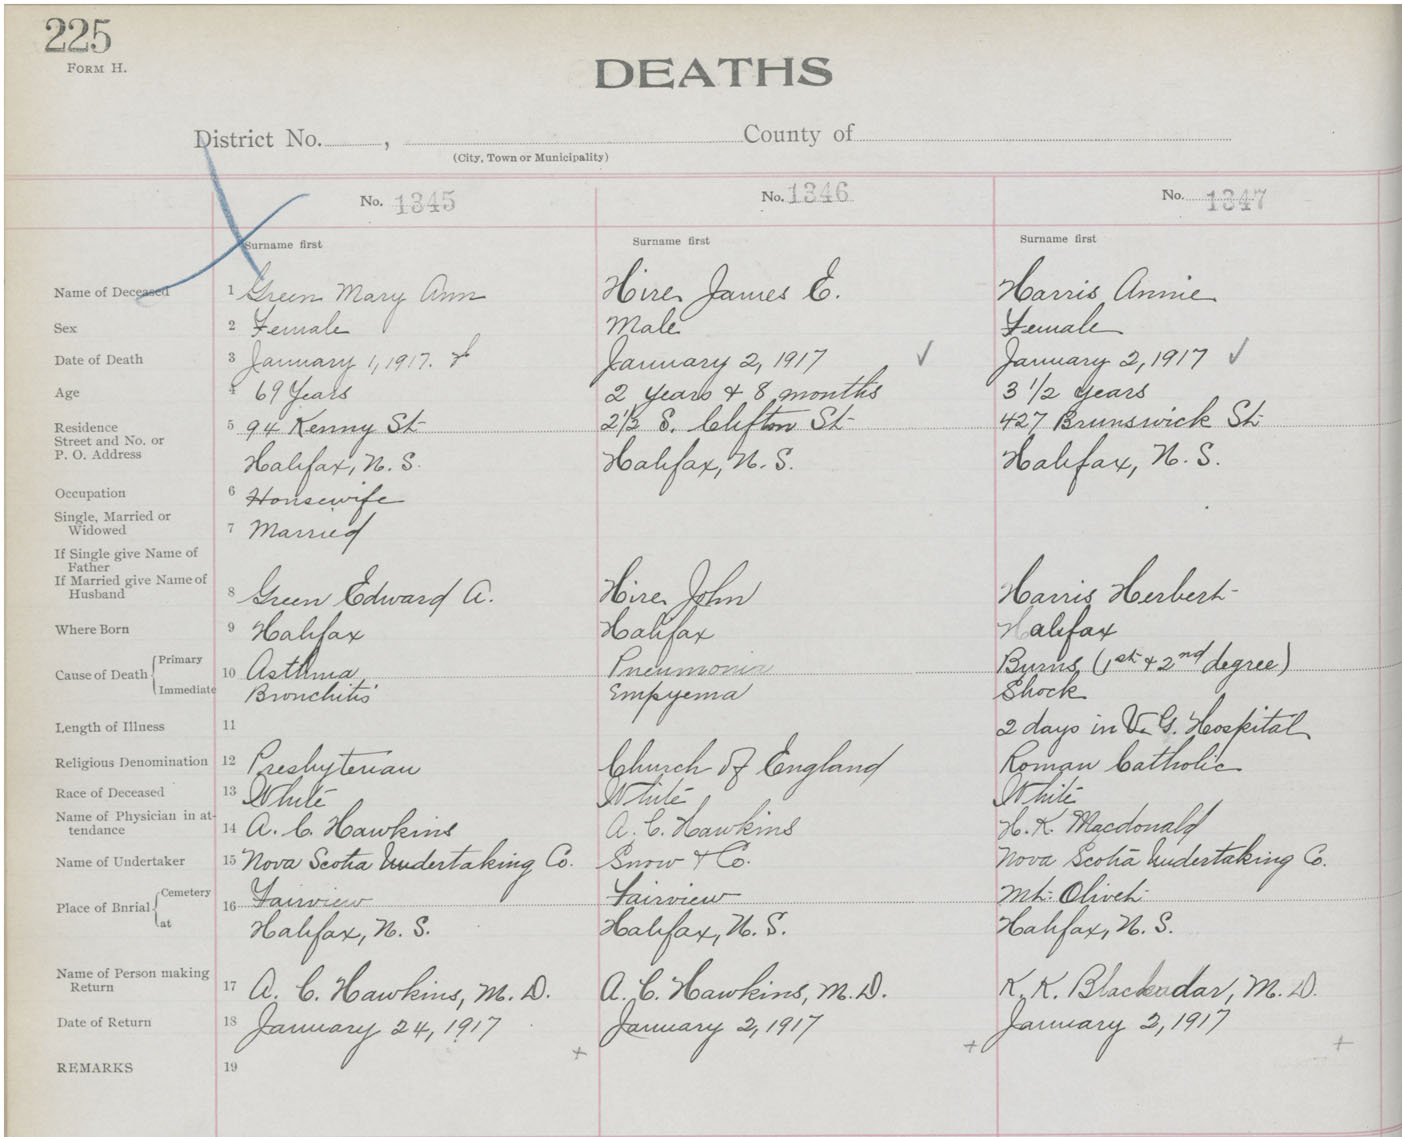 225
FORM H.
DEATHS
District No. , County of
(City, Town or Municipality)
No. 1345 No. 1346 No. 1347
Surname first Surname first Surname first
Name of Deceased 1 Green Mary Ann Hire James E. Harris Annie
Sex 2 Female Male Female
Date of Death 3 January 1, 1917. January 2, 1917 ✓ January 2, 1917 ✓
Age 4 69 Years 2 years & 8 months 3 1/2 years
Residence 5 94 Kenny St 2 1/2 S. Clifton St 427 Brunswick St
Street and No. or
P. O. Address Halifax, N. S. Halifax, N. S. Halifax, N. S.
Occupation 6 Housewife
Single, Married or
Widowed 7 Married
If Single give Name of
Father
If Married give Name of
Husband 8 Green Edward A. Hire John Harris Herbert
Where Born 9 Halifax Halifax Halifax
Cause of Death Primary 10 Asthma Pneumonia Burns (1st & 2nd degree)
Immediate Bronchitis Empyema Shock
Length of Illness 11 2 days in V. G. Hospital
Religious Denomination 12 Presbyterian Church of England Roman Catholic
Race of Deceased 13 White White White
Name of Physician in at-
tendance 14 A. C. Hawkins A. C. Hawkins H. K. Macdonald
Name of Undertaker 15 Nova Scotia Undertaking Co. Snow & Co. Nova Scotia Undertaking Co.
Place of Bnrial Cemetery 16 Fairview Fairview Mt. Olivet
at Halifax, N. S. Halifax, N. S. Halifax, N. S.
Name of Person making
Return 17 A. C. Hawkins, M. D. A. C. Hawkins, M. D. K. K. Blackadar, M. D.
Date of Return 18 January 24, 1917 January 2, 1917 January 2, 1917
+ + +
REMARKS 19